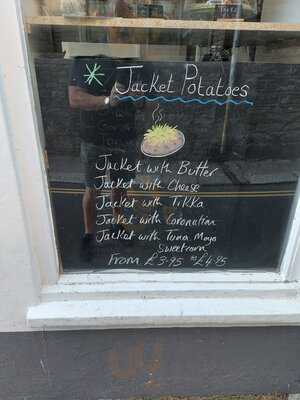 Jacket Potatoes
Jacket with Butter
Jacket with Cheese
Jacket with Tikka
Jacket with Coronation
Jacket with Tuna Mayo
Sweetcorn
From £3.95 to £4.95